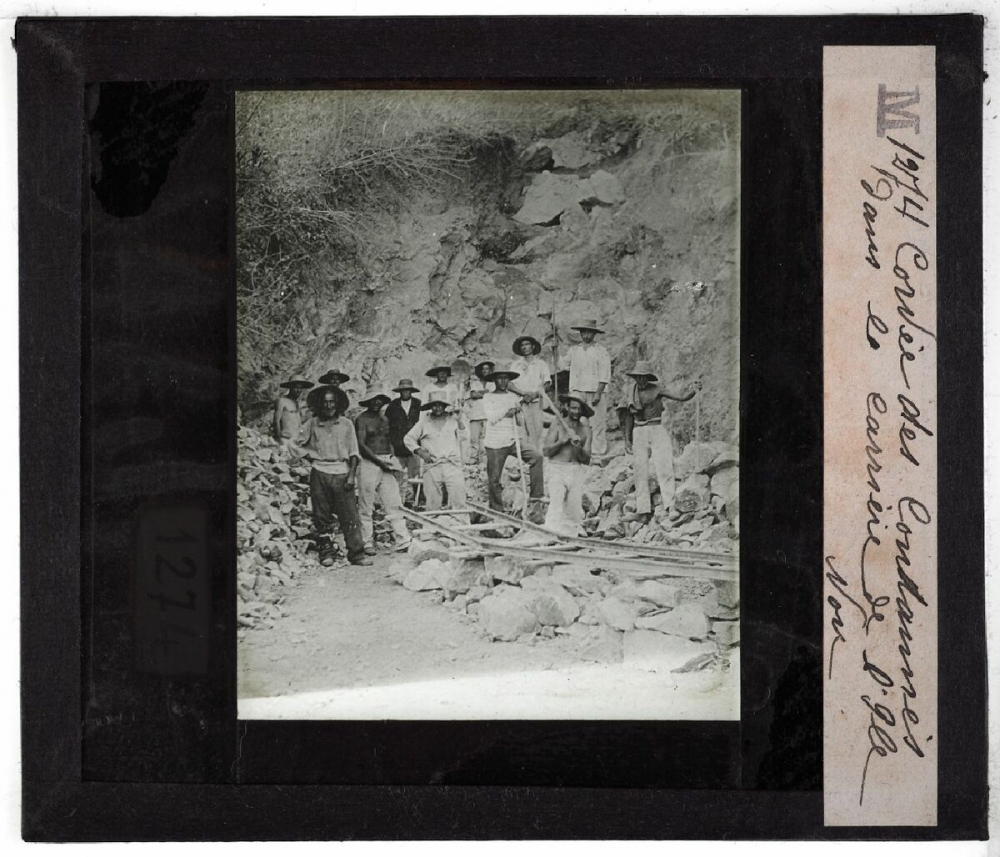 M 1274 Corvée des Condamnés
dans la carrière de l'Ile
Nou
1274